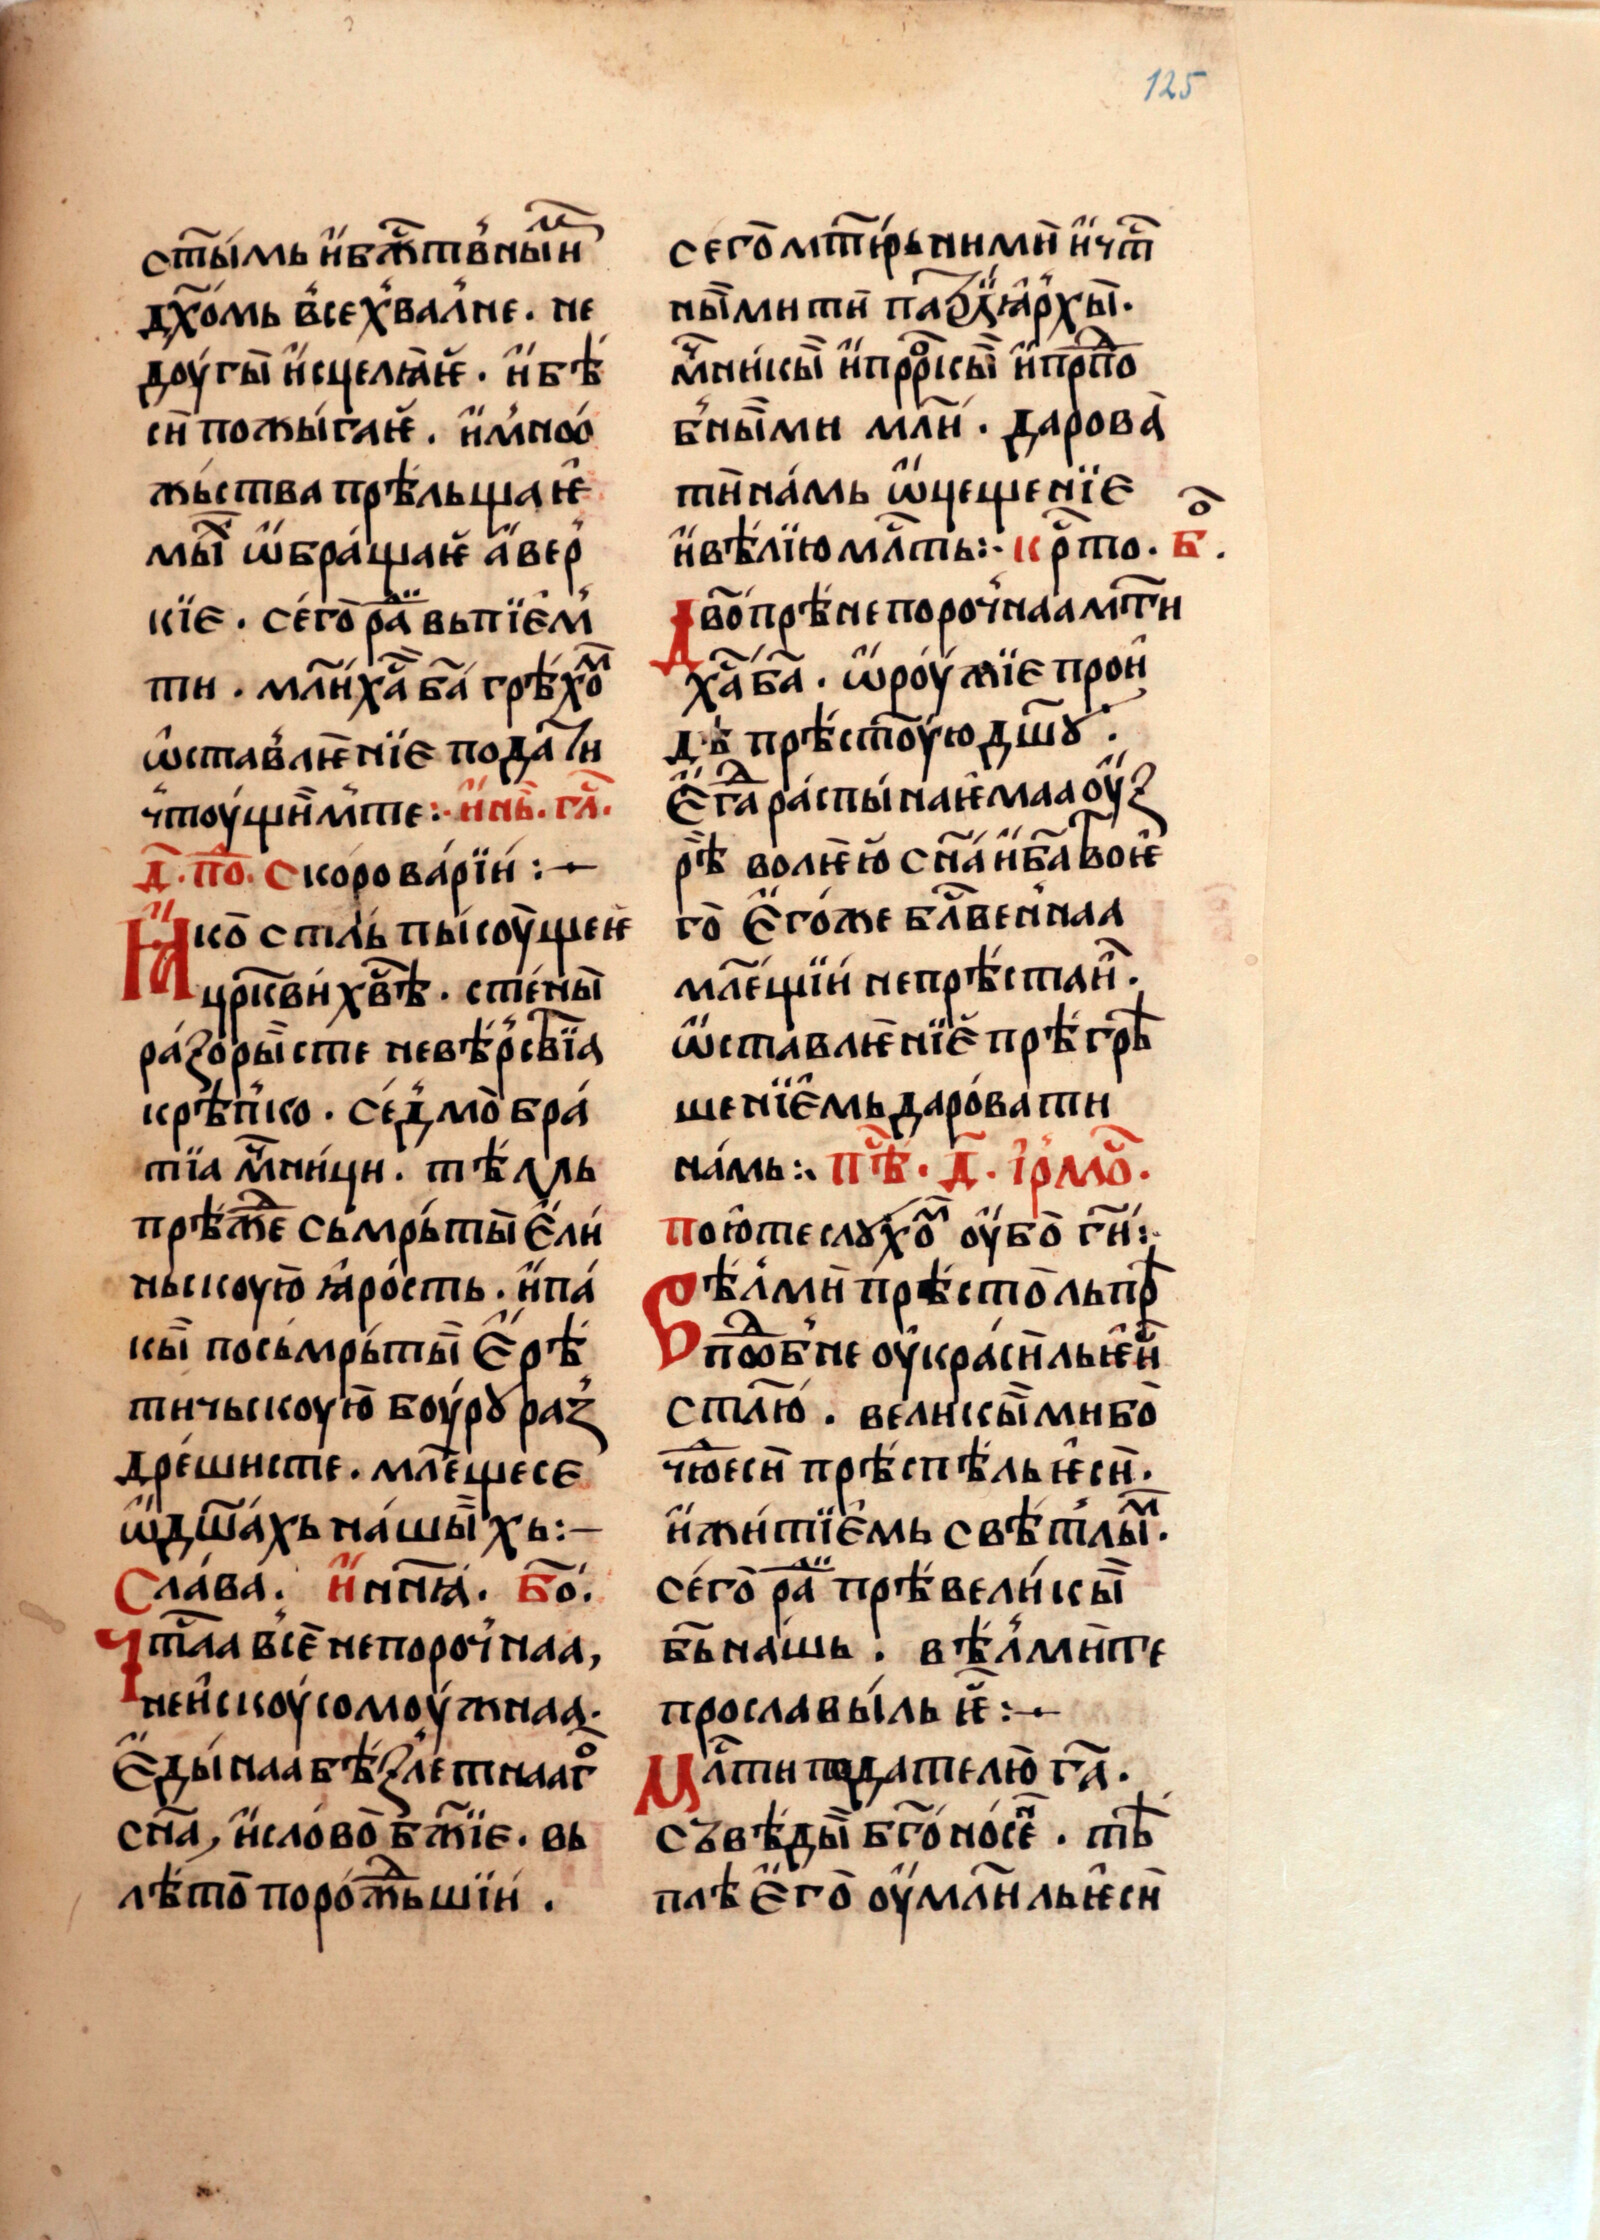 125
ст҃ы́мь и҆ бж҃ств́ныⷨи
дх҃ѡмь в҆сех҆вал҆не. не
доу́гы̀ и҆сцелꙗ́ѥ҆. и҆ бѣ́
си̑ помы́гаѥ҆. и҆ м҆ноѡ
жьства прѣль́щаѥ
мы̏ⷯ ѡ҆бра́щаѥ҆ а҆вер҆
кїе. сего̀ раⷣи вьпїе́м҆
ти. мл҃и́ ха҃ ба҃ грѣхо́ⷨ
ѡ҆став҆лѥ́нїе пода́ти
чтоу́щи̏м҆ те:· и҆ нь҃. гл҃.
д҃. по҃. Скоро вари́и :⁓
Ꙗ҆ко̀ стль́пы соу̀щеѥ
цр҃кви́ хв҃ѣ. сте́ны̀
ра́зоры̏сте невѣ́р҆ствїа
крѣп҆ко. се́д҆мо̀ бра́
тїа мⷱ҇ни́ци. тѣ́мль
прѣжⷣе сьмрь́ты̀ е҆́ли
ньскоую̀ ꙗ҆́рость. и҆ па́
кы̏ посьмрь́ты̏ е҆рѣ́
тичьскоую̀ боу́рꙋ раз҆
дре́шисте. мл҃еще се
ѡ҆ дш҃а́хь на́шы̏хь:⁓
Сла́ва. и҆ нн҃ꙗ́. бо҃.
Чⷭ҇таа в҆се̑ непоро́ч҆наа,
неи҆скоусомоу́жнаа.
е҆ды́наа бѣ́злетнааго
сн҃а, и҆ сло́во̀ бж҃їе. вь
лѣ́то̀ поро́жⷣьшїи́ .
сего̀ мт҃і́рьними̏ и҆ чⷭ҇т
ны̏ми ти̏ патрїа҆р҆хы̀.
мⷱ҇ни́кы̏ и҆ прⷪ҇рⷪ҇кы̏ и҆ прⷣпо
б҆ны̏ми мл҃и́. дарова̀
ти̏ на́мь ѡ҆цеще́нїе
и҆ вѣ́лїю млⷭ҇ть:· крⷭ҇то. бⷪ҇.
Дво҃ прѣнепороч҆наа мт҃и
ха҃ ба҃. ѡ҆роу́жїе прои҆
дѣ̀ прѣст҃оу́ю дш҃ꙋ .
Е҆гⷣа ра́спы́наѥмаа оу҆́з
рѣ̏ волѥ́ю сн҃а́ и҆ ба҃ твоѥ҆
го̀ е҆го́же блⷭ҇вен҆наа
мл҃е́щїи́ непрѣ́стаи҆̀.
ѡ҆став҆лѥ̏нїе҆ прѣ́грѣ
ше́нїе҆мь даро́вати
на́мь:· пⷭ҇ѣ. д҃. і҆рмоⷭ҇.
Пою҆те слꙋхо́ⷨ оу҆бо̀ гн҃і:·
Вѣ́л҆ми̏ прѣ́сто̀ль прⷣ
пⷣоѡб҆не оу҆кра́си̏ль ѥ҆си̏
ст҃лю. вели́кы̏ми бо̀
чюⷣеси̏ прѣ́спѣ́ль ѥ҆си̏.
и҆ жи́тїе҆мь свѣ́т҆лы̏ⷨ.
сего̀ раⷣи прѣ́вели́кы̏
бь҃ на́шь . вѣл҆ми̏ те
прославы́ль ѥ҆:⁓
Млⷭ҇ти пода́телю̀ га҃.
сьвѣ́ды̏ бг҃оно́сеⷩ . тѣ́
плѣ е҆го̀ оу҆мл҃и́ль ѥ҆си̏